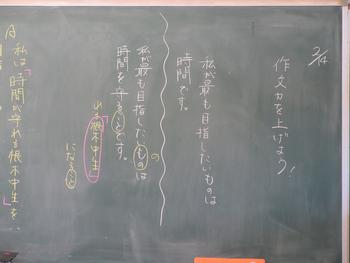 2/4
作文力を上げよう!
私が最も目指したいものは
時間です。
私が最も目指したいものは
の
時間を守ることです。
れる根木中生」
になること
A
私は「時間が守れる根木中生を